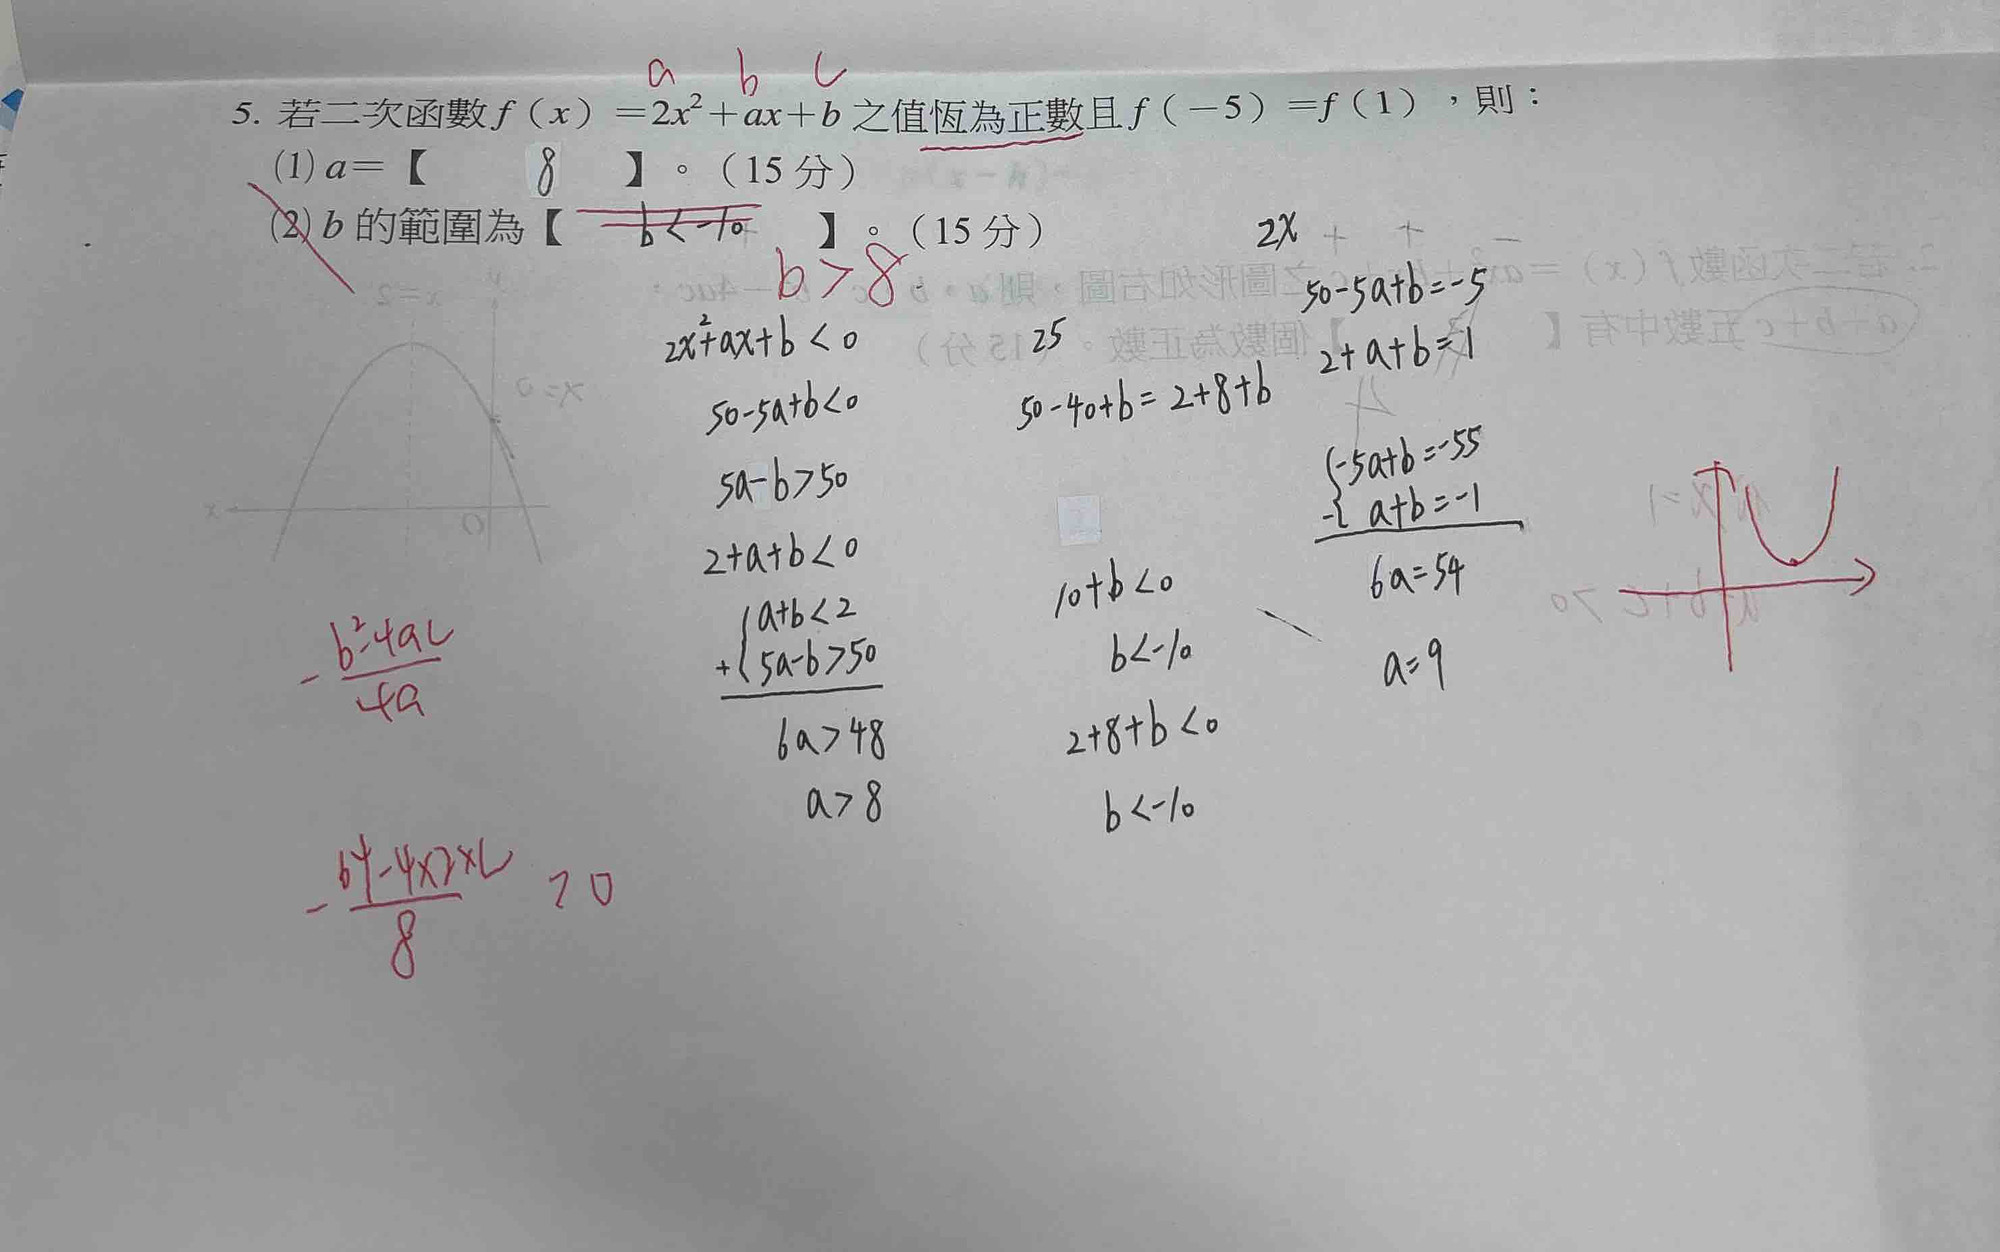 a b c
5. 若二次函數 f（x）=2x²+ax+b 之值恆為正數且 f（-5）=f（1），則：
(1) a=【 8 】。（15 分）
(2) b 的範圍為【 b<-10 】。（15 分）
b>8
2x²+ax+b<0
50-5a+b<0
5a-b>50
2+a+b<0
a+b<2
+{5a-b>50
6a>48
a>8
25
50-40+b=2+8+b
10+b<0
b<-10
2+8+b<0
b<-10
2x
50-5a+b=-5
2+a+b=1
{-5a+b=-55
-{a+b=-1
6a=54
a=9
-b²-4ac
4a
-64-4×2×c >0
8